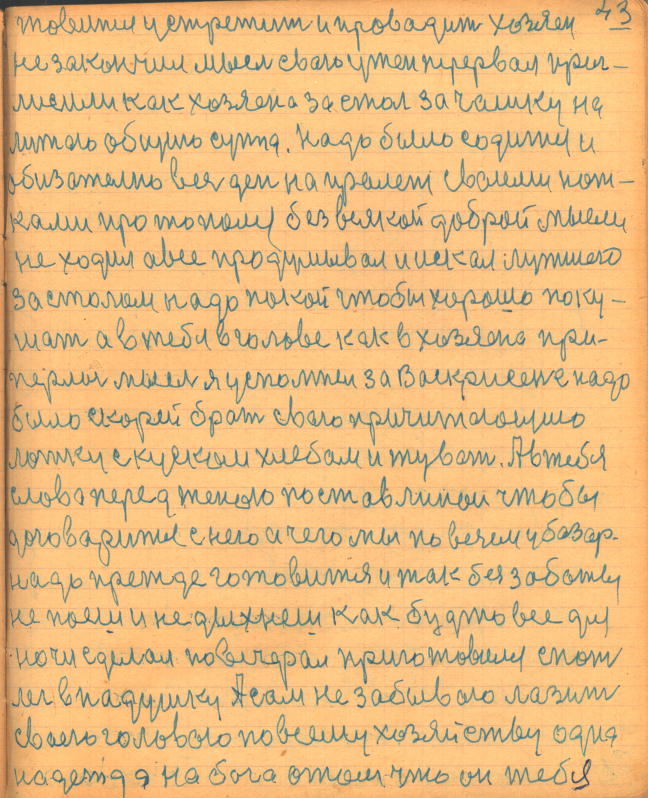 43
товится и устретит и провадит хозяен
не закончил мысл свою ужен прервал приг-
ласили как хозяена за стол за чашку на
литою общию супа. Надо было содится и
обизателно вея ден на пролет своими нож-
ками протополеѕ без всякой доброй мысли
не ходил а все продумывал и искал лутшего
за столом надо покой чтобы хорошо поку-
шат а в тебя в голове как в хозяена при-
перлы мысл я успомнил за Васкрисене надо
было скорей брат свою причитающию
лошку с куском хлебам и жуват. А в тебя
слова перед женою поставлиной чтобы
договарится с нею с чего мы повезем у базар.
надо прежде готовится и так без заботы
не поеш и не дыхнеш как будто все дня
ночи сделал повечерал приготовился спат
лег в падушку А сам не забываю лазит
своею головою по всему хозяйству одна
надежда на бога отом что он тебя